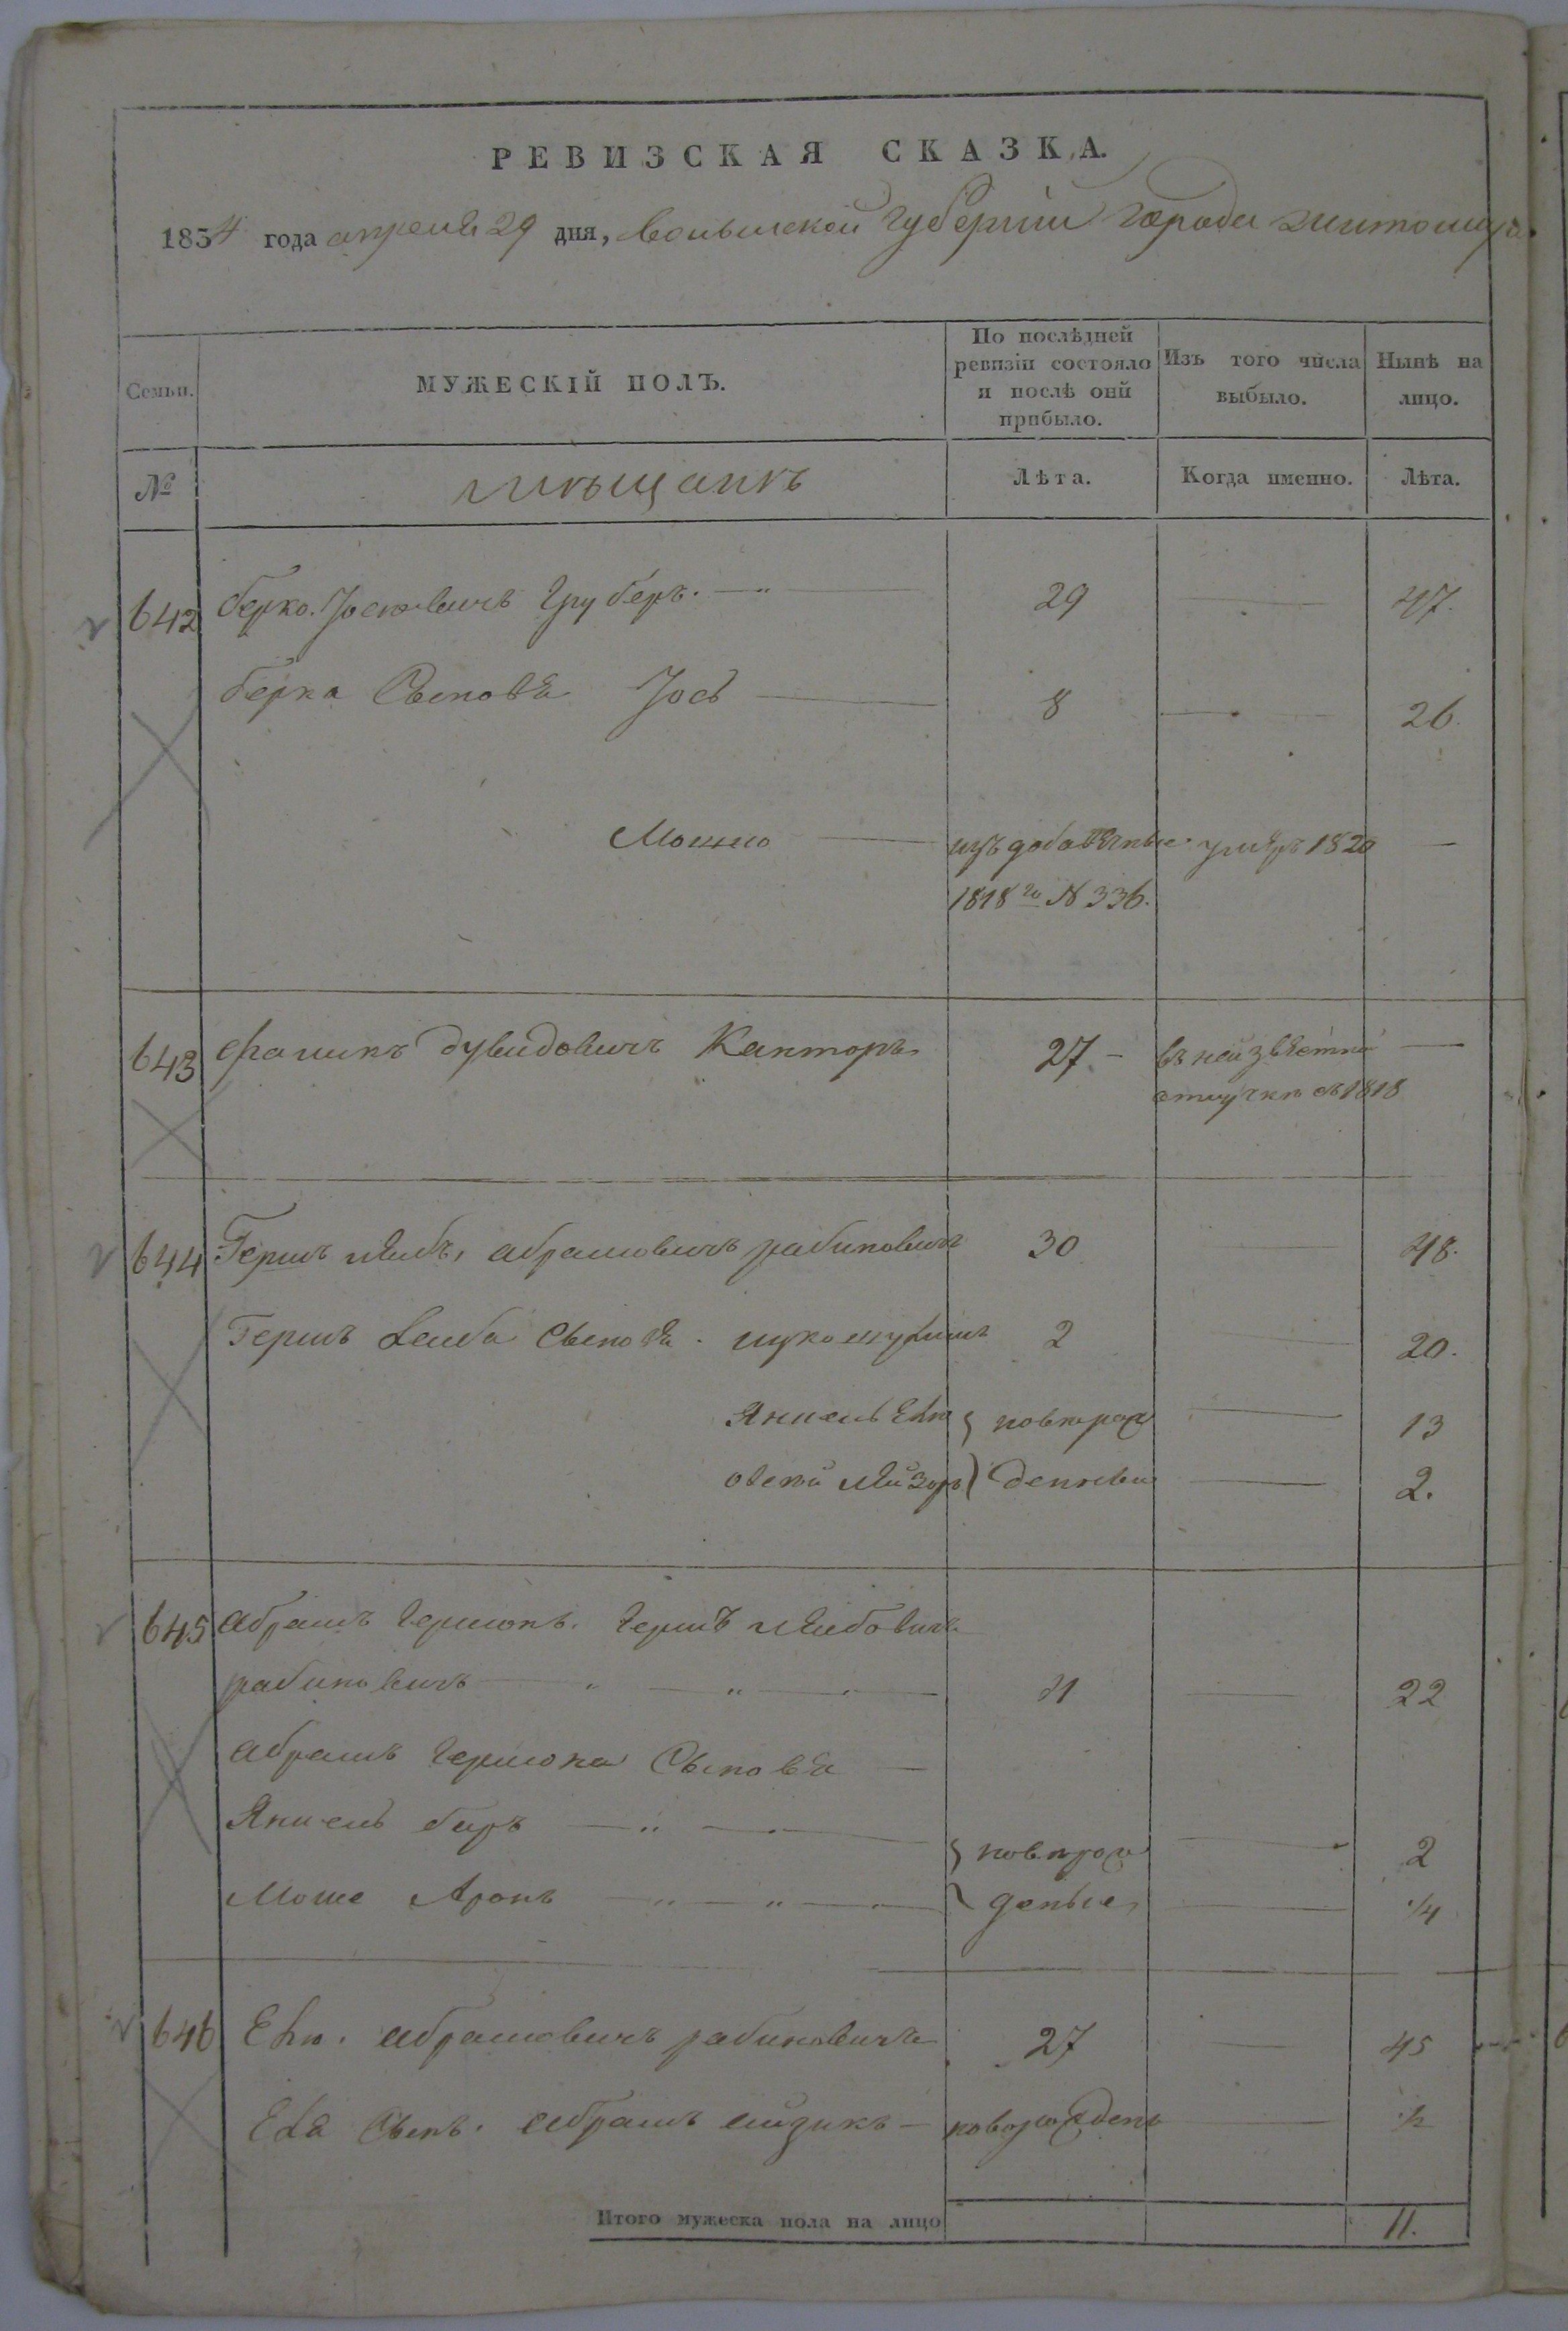 РЕВИЗСКАЯ СКАЗКА.
1834 года апреля 29 дня, Волынской Губернии Города Житомира.
Семьи.
МУЖЕСКІЙ ПОЛЪ.
По послѣдней ревизіи состояло и послѣ оной прибыло.
Изъ того числа выбыло.
Нынѣ на лицо.
№
мѣщанъ
Лѣта.
Когда именно.
Лѣта.
642 Берко Іосьовичъ Груберъ. 29 — 47.
берка Сыновья Іось 8 — 26.
Мошко изъ добавочные умеръ 1820 —
1818го N 336.
643 Фаликъ Дувидовичъ Канторъ 27 — въ неизвѣстной —
отлучкѣ съ 1818
644 Гершъ лейбъ, абрамовичъ рабиновичъ 30 — 48.
Гершъ Лейба Сыновья 2 — 20.
Янкель Елю } новорож — 13
овсей лейзоръ } денныи — 2.
645 абрамъ гершонъ. гершъ лейбовичъ
рабиновичъ 4 — 22
абрамъ гершона Сыновья —
Янкель беръ } новорож — 2
Моше Аронъ } деные — 1/4
646 Елю. абрамовичъ рабиновичъ 27 — 45
Еля Сынъ. абрамъ айзикъ — новорожденъ — 1/2
Итого мужеска пола на лицо 11.